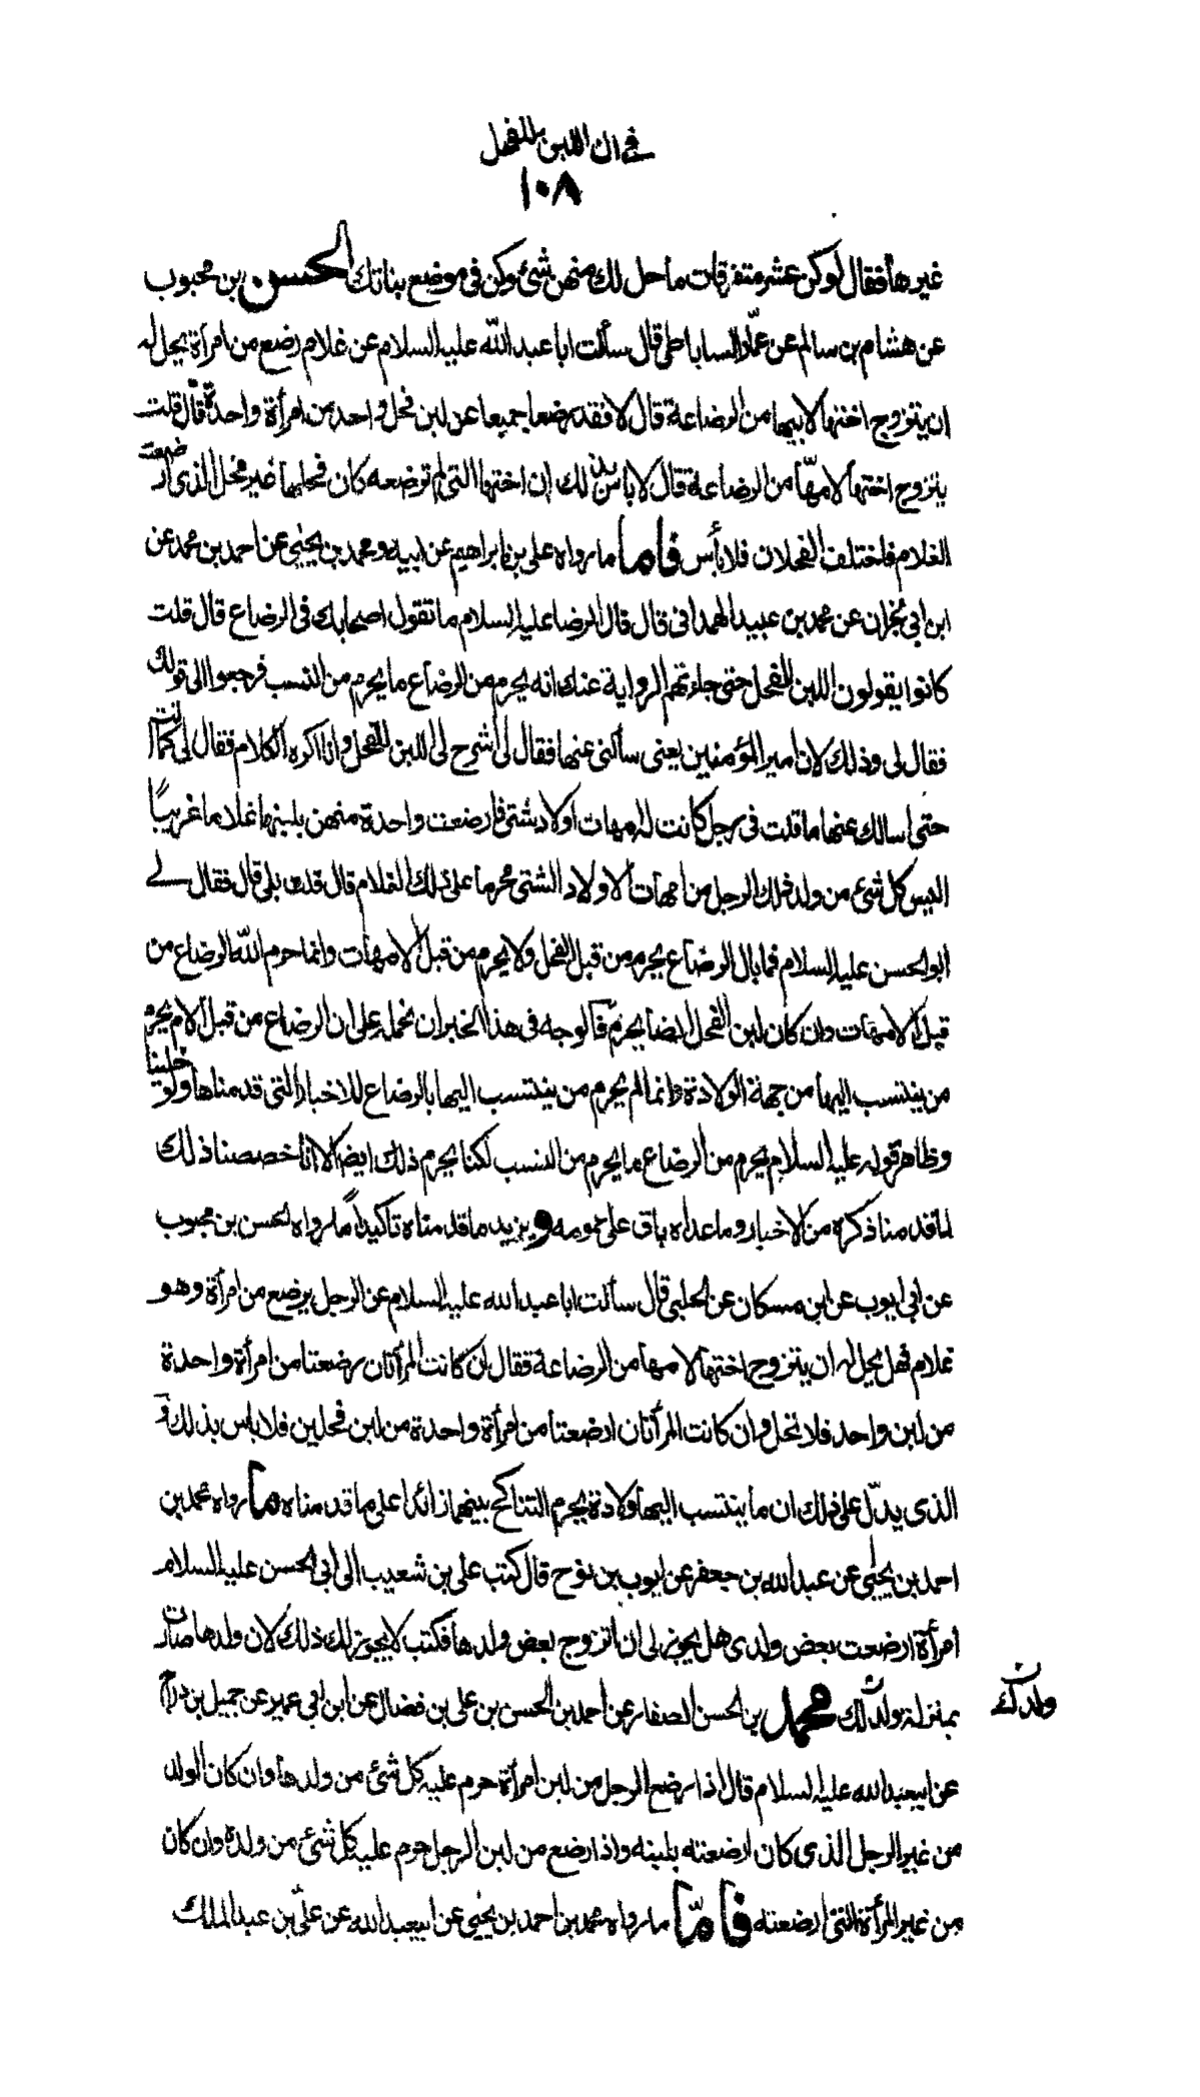 في ان اللبن للفحل
١٠٨
غيرها فقال لو كن عشر متفرقات ما حل لك منهن شئ وكن في موضع بناتك الحسن بن محبوب
عن هشام بن سالم عن عمّار الساباطى قال سألت ابا عبد الله عليه السلام عن غلام رضع من امرأة يحل له
ان يتزوج اختها لابيها من الرضاعة قال لا فقد رضعا جميعا عن لبن فحل واحد من امرأة واحدة قال قلت
يتزوج اختها لامهّا من الرضاعة قال لا باس بذلك ان اختها التى لم ترضعه كان فحلها غير فحل الذى ارضعت
الغلام فاختلف الفحلان فلا بأس فاما ما رواه على بن ابراهيم عن ابيه ومحمد بن يحيى عن احمد بن محمد عن
ابن ابي نجران عن محمد بن عبيد الهمدانى قال قال الرضا عليه السلام ما تقول اصحابك في الرضاع قال قلت
كانوا يقولون اللبن للفحل حتى جاءتهم الرواية عنك انه يحرم من الرضاع ما يحرم من النسب فرجعوا الى قولك
فقال لى وذلك لان امير المؤمنين يعنى سألنى عنها فقال لى اشرح لى اللبن للفحل وانا اكره الكلام فقال لى كما انت
حتى اسالك عنها ما قلت في رجل كانت له امهات اولاد شتى فارضعت واحدة منهن بلبنها غلاما غريبًا
اليس كل شئ من ولد ذلك الرجل من امهات الاولاد الشتى محرما على ذلك الغلام قال قلت بلى قال فقال لے
ابو الحسن عليه السلام فما بال الرضاع يحرم من قبل الفحل ولا يحرم من قبل الامهات وانما حرم الله الرضاع من
قبل الامهات وان كان لبن الفحل ايضا يحرم فالوجه في هذا الخبر ان نحمله على ان الرضاع من قبل الام يحرم
من ينتسب اليها من جهة الولادة وانما لم يحرم من ينتسب اليها بالرضاع للاخبار التى قدمناها ولو خلينا
وظاهر قوله عليه السلام يحرم من الرضاع ما يحرم من النسب لكنا نحرم ذلك ايضا الا انا خصصنا ذلك
لما قدمنا ذكره من الاخبار وما عداه باق على عمومه و يزيد ما قدمناه تاكيداً ما رواه الحسن بن محبوب
عن ابي ايوب عن ابن مسكان عن الحلبى قال سألت ابا عبد الله عليه السلام عن الرجل يرضع من امرأة وهو
غلام فهل يحل له ان يتزوج اختها لامها من الرضاعة فقال ان كانت المرأتان رضعتا من امرأة واحدة
من لبن واحد فلا تحل وان كانت المرأتان ارضعتا من امرأة واحدة من لبن فحلين فلا باس بذلك و
الذى يدلّ على ذلك ان ما ينتسب اليها ولادة يحرم التناكح بينهما زائدا على ما قدمناه ما رواه محمد بن
احمد بن يحيى عن عبد الله بن جعفر عن ايوب بن نوح قال كتب على بن شعيب الى ابى الحسن عليه السلام
امرأة ارضعت بعض ولدى هل يجوز لى ان اتزوج بعض ولدها فكتب لا يجوز لك ذلك لان ولدها صارت
بمنزلة ولدك محمد بن الحسن الصفار عن احمد بن الحسن بن على بن فضال عن ابن ابي عمير عن جميل بن دراج
ولدك
عن ابيعبد الله عليه السلام قال اذا رضع الرجل من لبن امرأة حرم عليه كل شئ من ولدها وان كان الولد
من غير الرجل الذى كان ارضعته بلبنه واذا رضع من لبن الرجل حرم عليه كل شئ من ولده وان كان
من غير المرأة التى ارضعته فامّا ما رواه محمد بن احمد بن يحيى عن ابيعبد الله عن علىّ بن عبد الملك